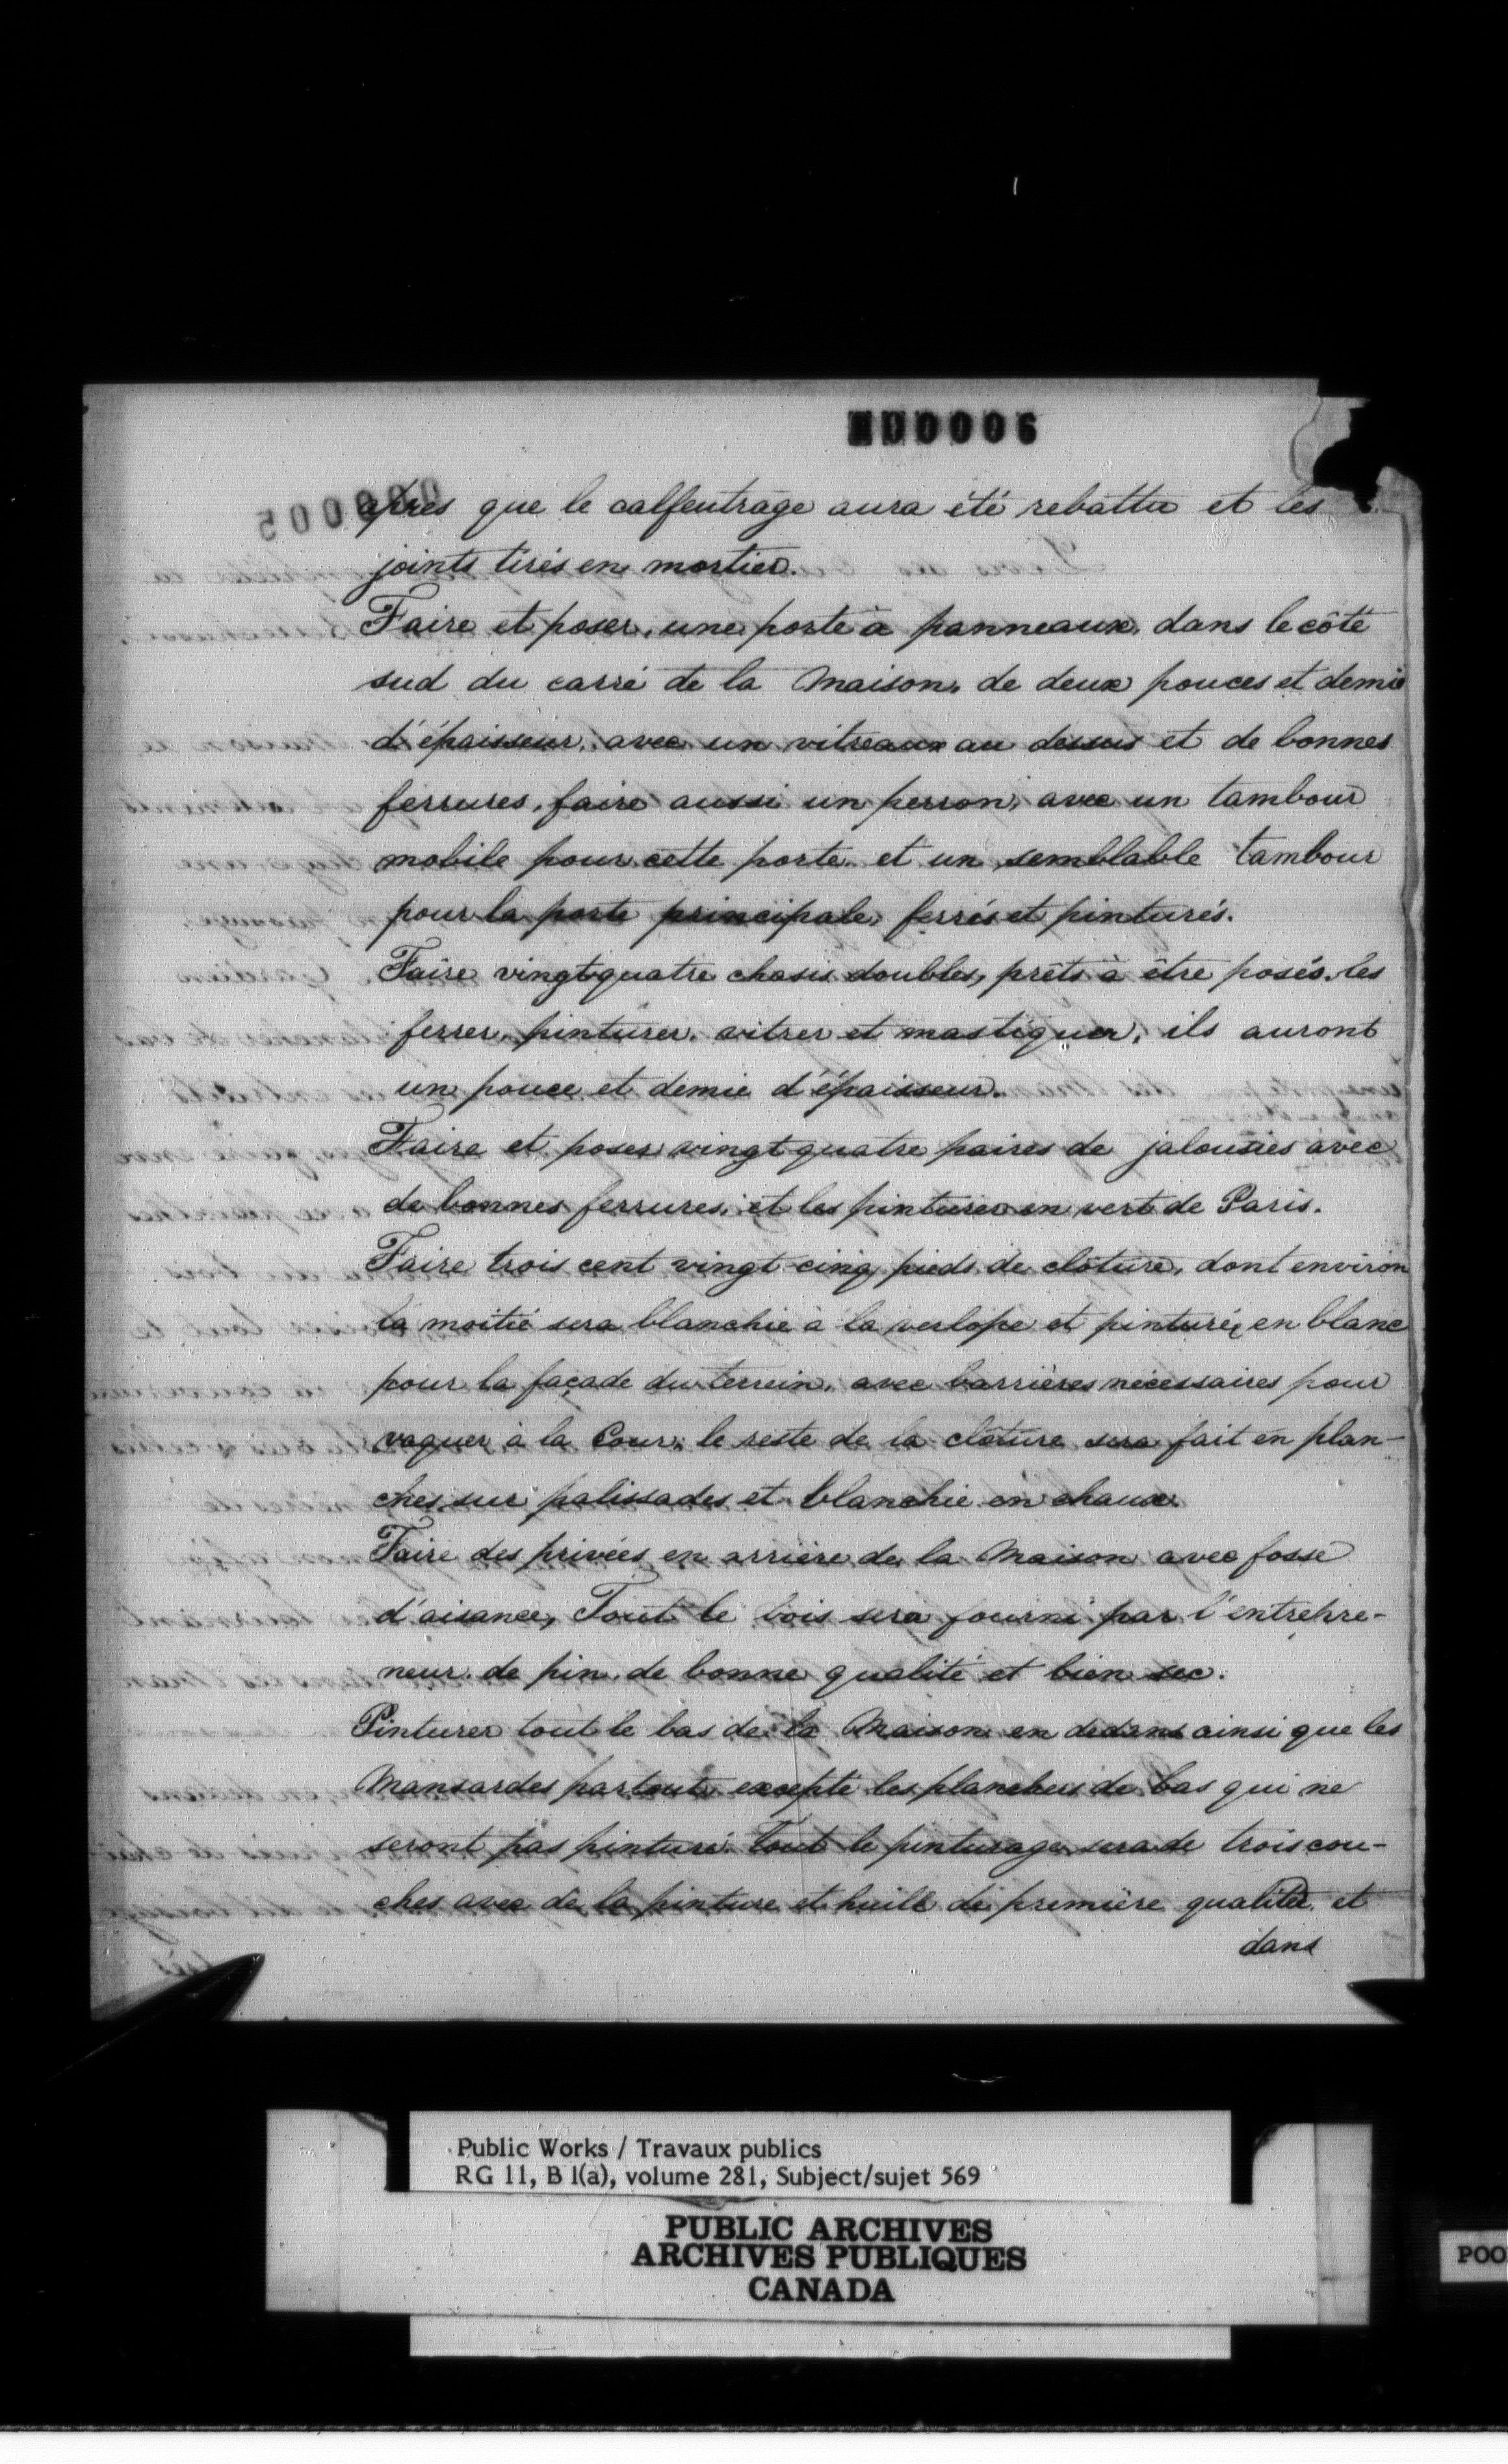 000006
après que le calfeutrage aura été rebattu et les
joints tirés en mortier.
Faire et poser, une porte à panneaux, dans le côté
sud du carré de la Maison, de deux pouces et demie
d'épaisseur, avec un vitreaux au dessus et de bonnes
ferrures, faire aussi un perron, avec un tambour
mobile pour cette porte, et un semblable tambour
pour la porte principale, ferrés et pinturés.
Faire vingt-quatre chasis doubles, prêts à être posés, les
ferrer, pinturer, vitrer et mastiquer, ils auront
un pouce et demie d'épaisseur.
Faire et poser vingt-quatre paires de jalousies avec
de bonnes ferrures, et les pinturer en vert de Paris.
Faire trois cent vingt-cinq pieds de clôture, dont environ
la moitié sera blanchie à la verlope et pinturée en blanc
pour la façade du terrein, avec barrières nécessaires pour
vaquer à la Cour, le reste de la clôture sera fait en plan-
ches sur palissades et blanchie en chaux.
Faire des privées en arrière de la Maison avec fosse
d'aisance, Tout le bois sera fourni par l'entrepre-
neur, de pin, de bonne qualité et bien sec.
Pinturer tout le bas de la Maison en dedans ainsi que les
Mansardes partout, excepté les planchers de bas qui ne
seront pas pinturé. Tout le pinturage sera de trois cou-
ches avec de la pinture et huile de première qualitée, et
dans
Public Works / Travaux publics
RG 11, B 1(a), volume 281, Subject/sujet 569
PUBLIC ARCHIVES
ARCHIVES PUBLIQUES
CANADA
POO